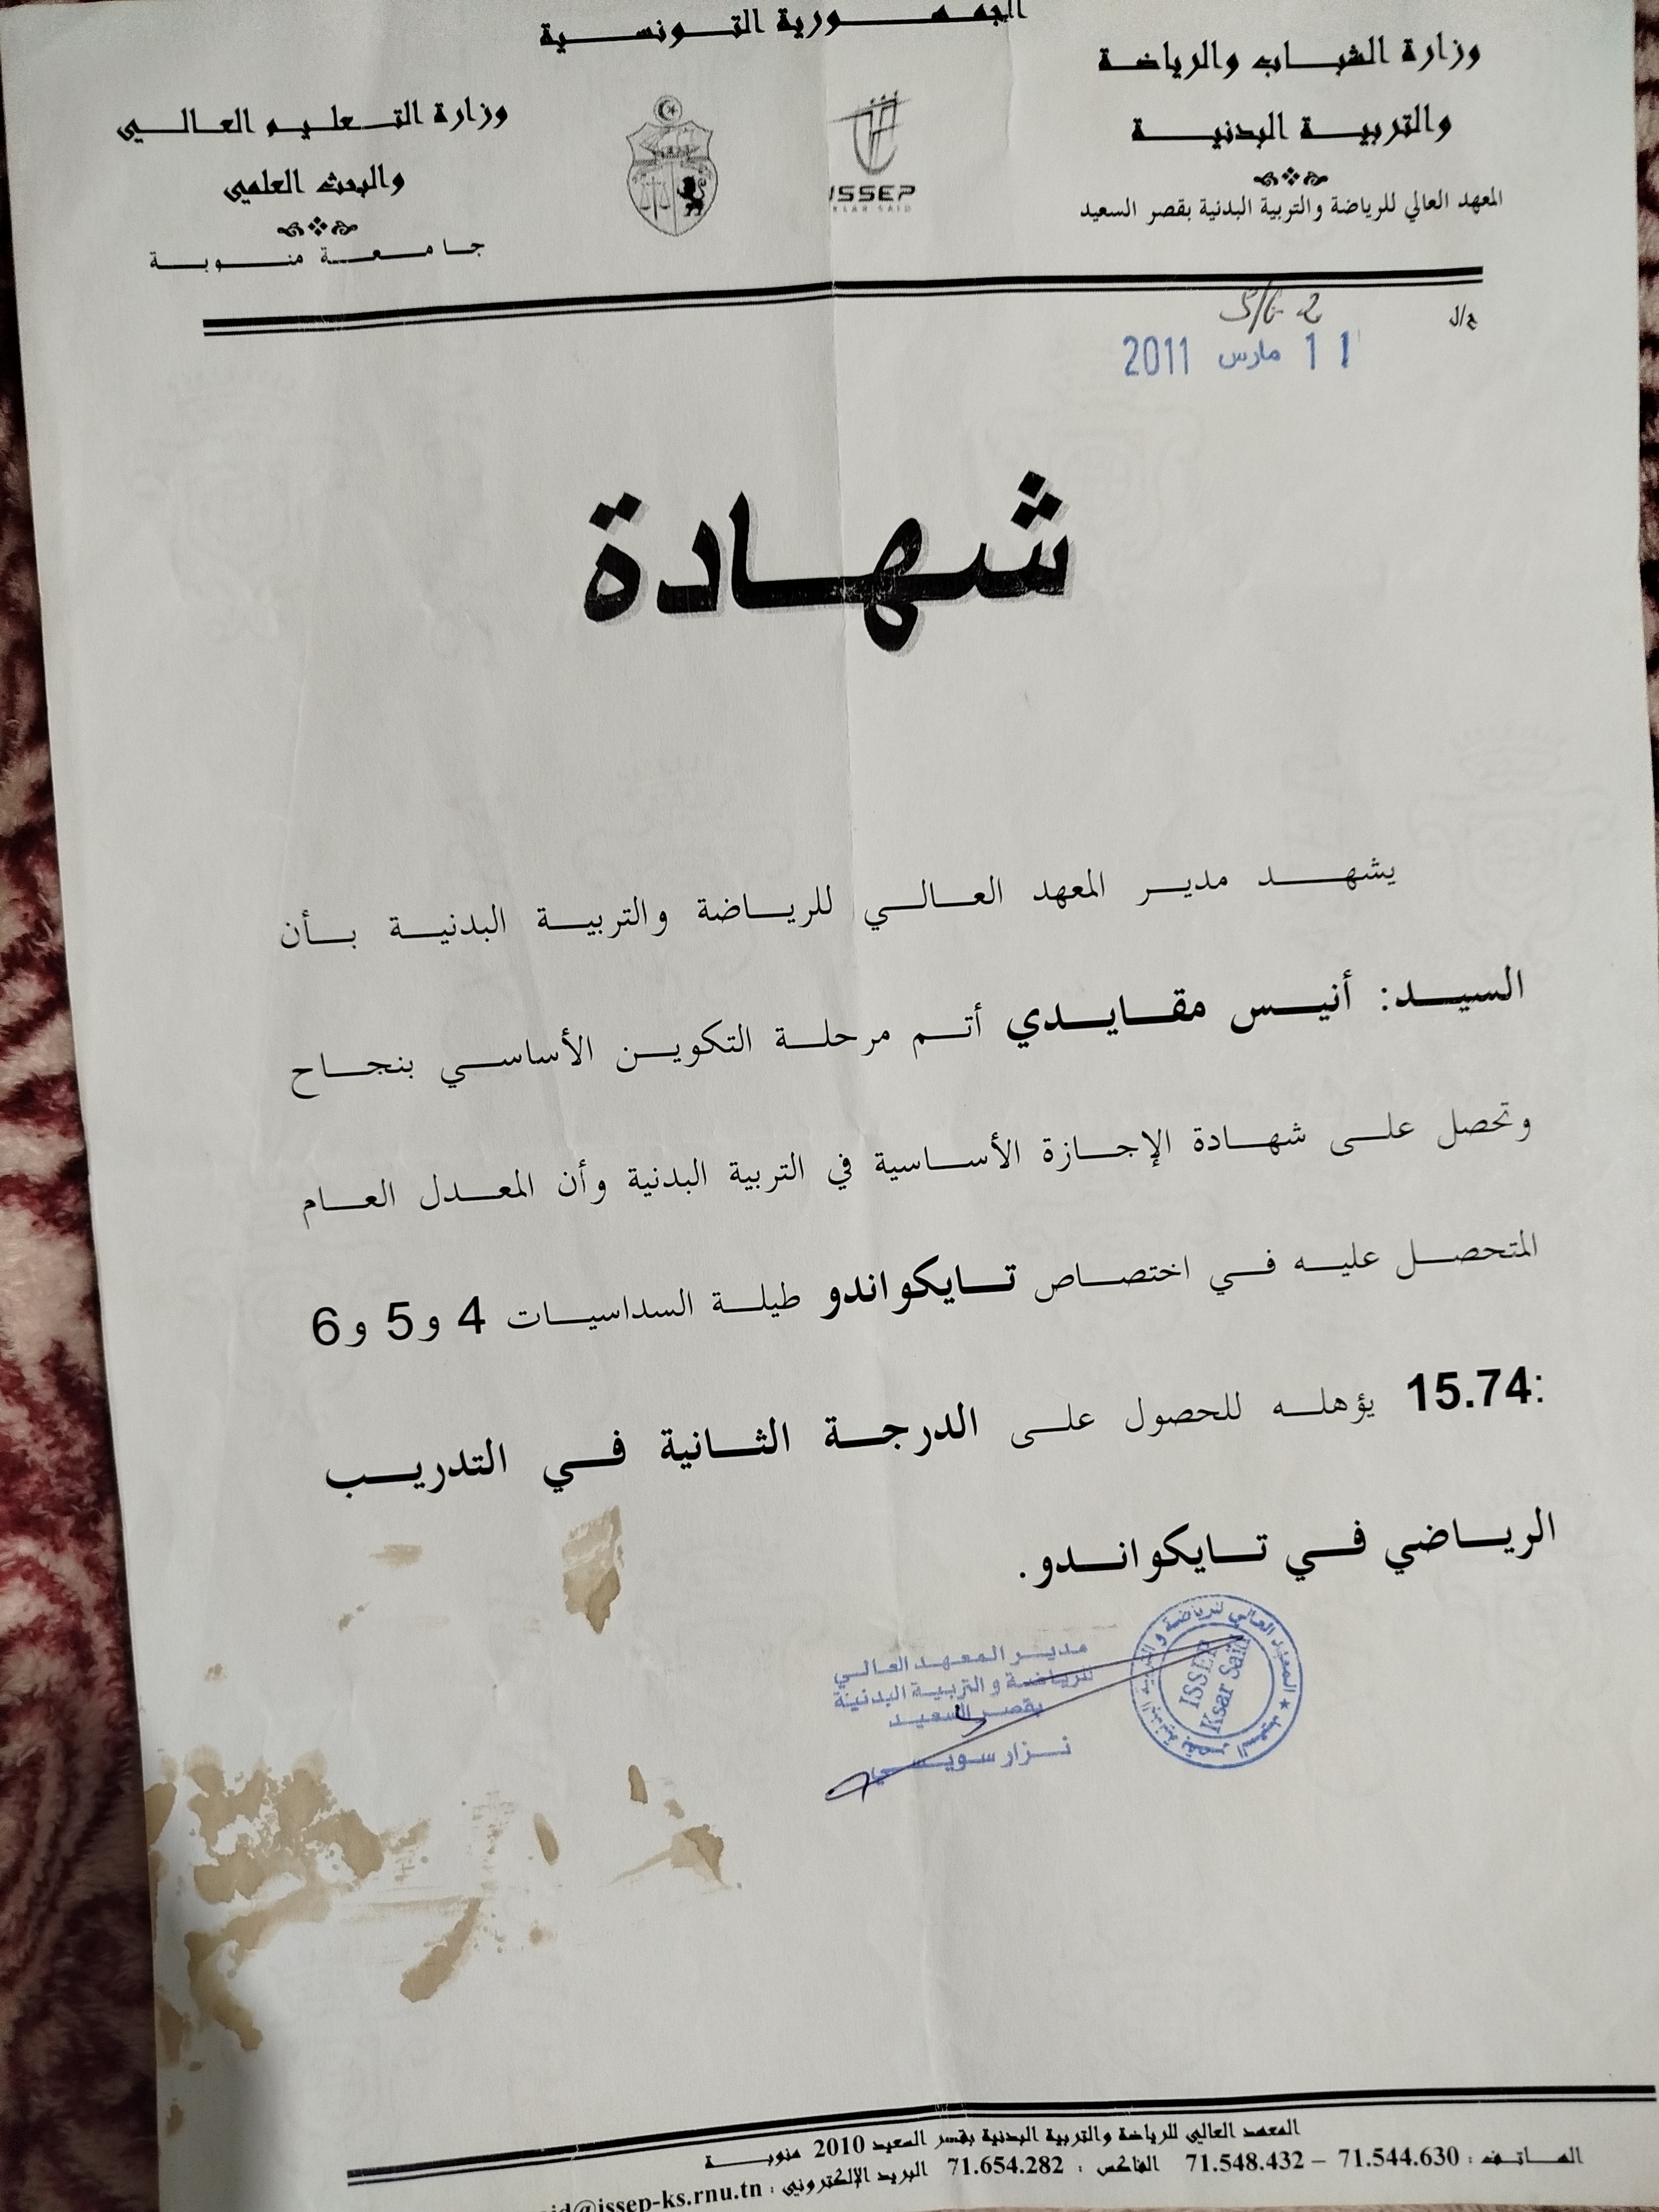 الجمهورية التونسية
وزارة الشباب والرياضة
والتربية البدنية
المعهد العالي للرياضة والتربية البدنية بقصر السعيد
وزارة التعليم العالي
والبحث العلمي
جامعة منوبة
ISSEP
KSAR SAID
11 مارس 2011
شهادة
يشهد مدير المعهد العالي للرياضة والتربية البدنية بأن
السيد: أنيس مقايدي أتم مرحلة التكوين الأساسي بنجاح
وتحصل على شهادة الإجازة الأساسية في التربية البدنية وأن المعدل العام
المتحصل عليه في اختصاص تايكواندو طيلة السداسيات 4 و5 و6
:15.74 يؤهله للحصول على الدرجة الثانية في التدريب
الرياضي في تايكواندو.
مدير المعهد العالي
للرياضة و التربية البدنية
بقصر السعيد
نزار سويسي
المعهد العالي للرياضة و التربية البدنية بقصر السعيد
ISSEP
Ksar Saïd
المعهد العالي للرياضة والتربية البدنية بقصر السعيد 2010 منوبة
الهاتف : 71.544.630 – 71.548.432 الفاكس : 71.654.282 البريد الإلكتروني : @issep-ks.rnu.tn